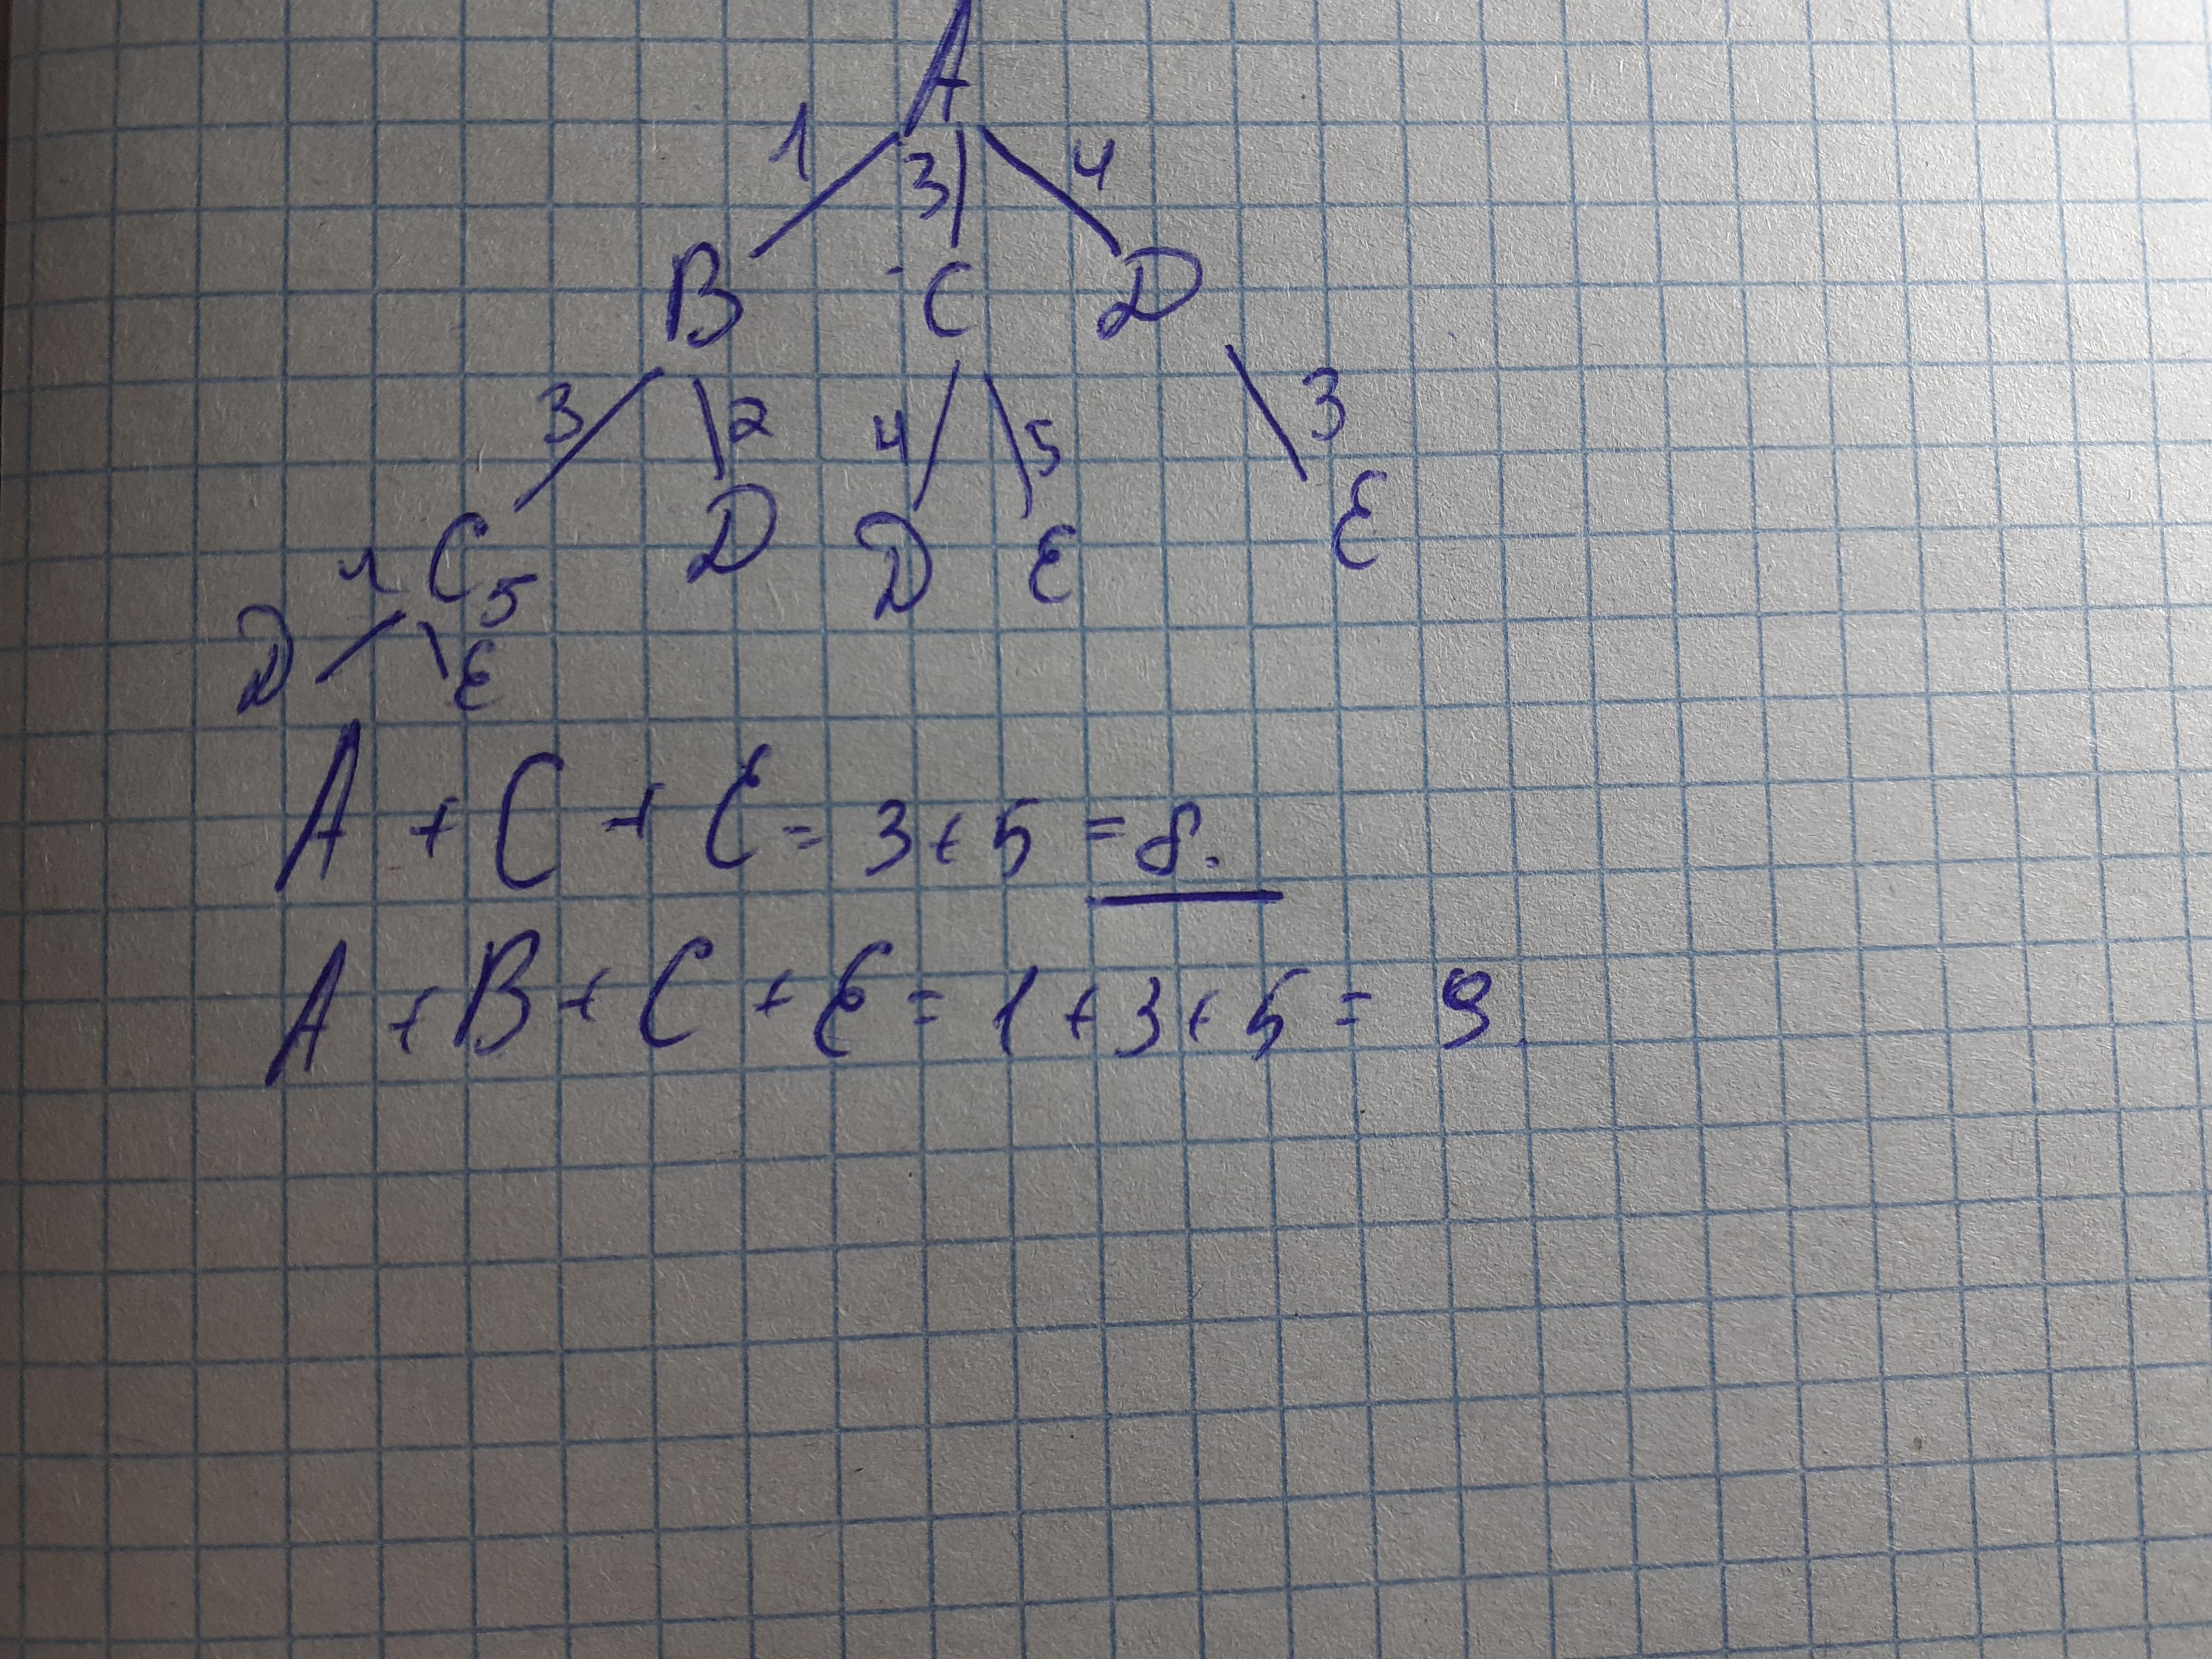 A
1 3 4
B C D
3 2 4 5 3
C D D E E
1 5
D E
A + C + E = 3 + 5 = 8.
A + B + C + E = 1 + 3 + 5 = 9.